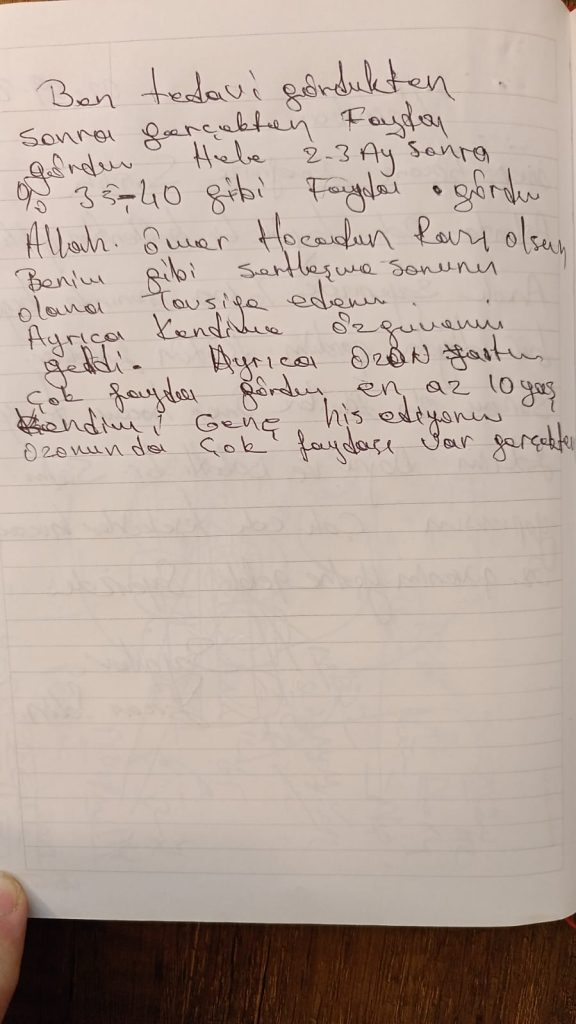 Ben tedavi gördükten
sonra gerçekten Fayda
gördüm Hele 2-3 Ay sonra
% 35-40 gibi Fayda gördüm
Allah. Ömer Hocadan Razı olsun
Benim gibi sertleşme sorunu
olana Tavsiye ederim.
Ayrıca Kendime özgüvenim
geldi. Ayrıca OZON
çok fayda gördüm en az 10 yaş
Kendimi Genç his ediyorum
Ozonunda çok faydası var gerçekten